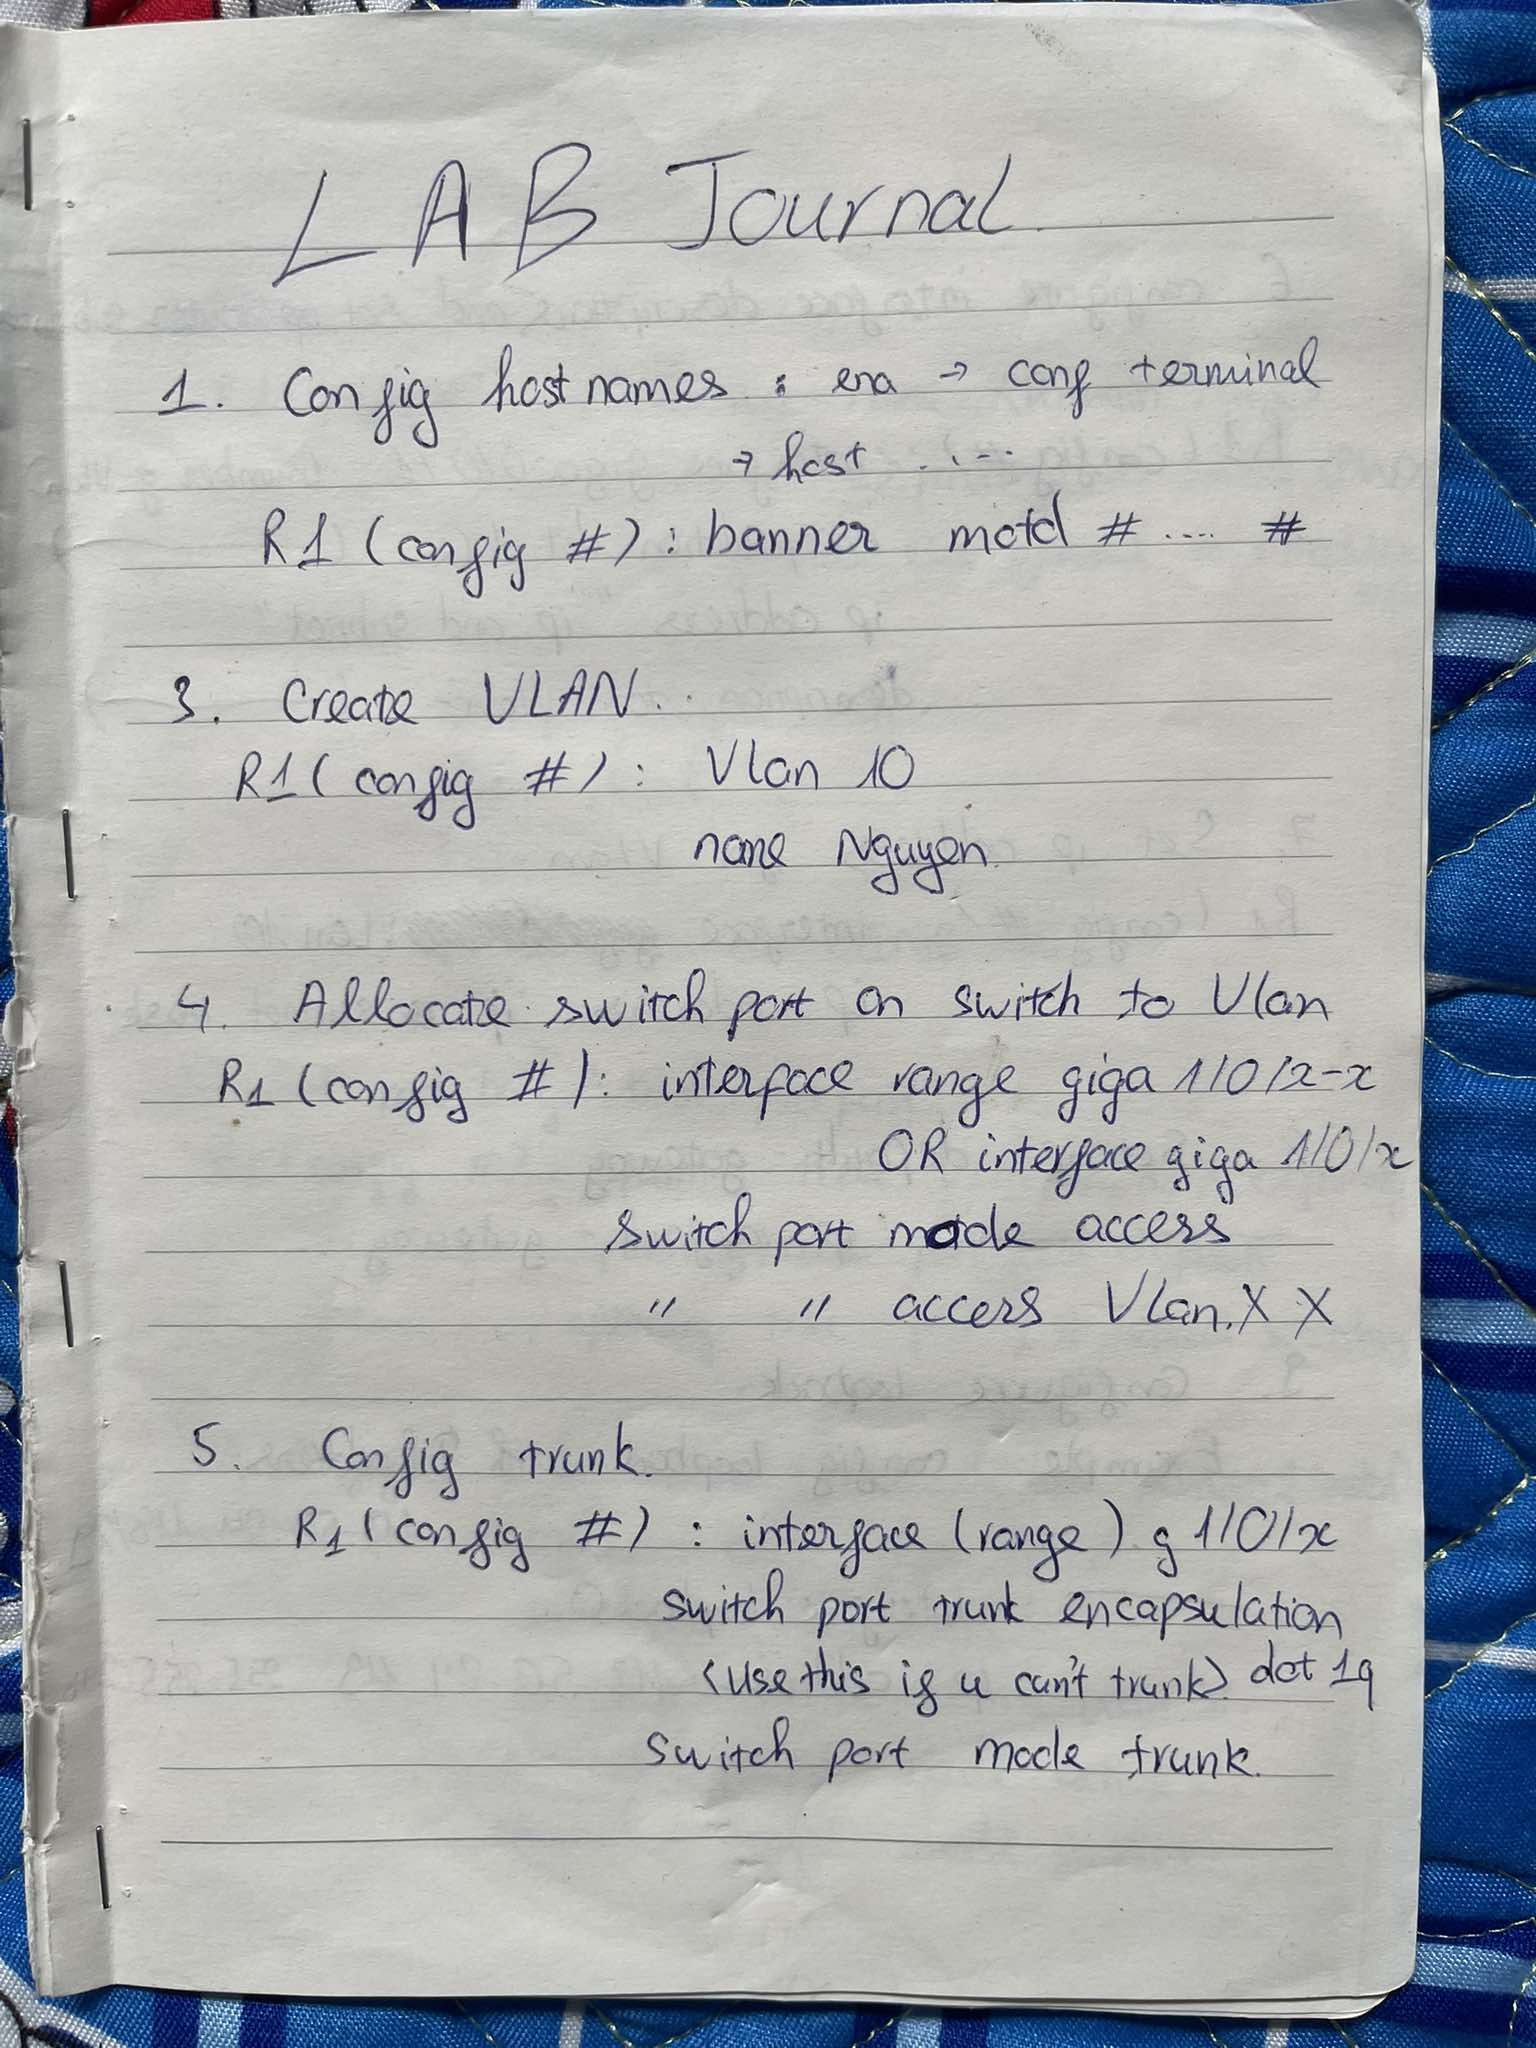 LAB Journal
1. Config hostnames : ena → conf terminal
→ host .....
R1 (config #) : banner motd # .... #
3. Create VLAN.
R1 (config #) : Vlan 10
name Nguyen
4. Allocate switch port on switch to Vlan
R1 (config #) : interface range giga 1/0/x-x
OR interface giga 1/0/x
switch port mode access
" " access Vlan.X X
5. Config trunk.
R1 (config #) : interface (range) g 1/0/x
switch port trunk encapsulation
(use this if u can't trunk) dot 1q
switch port mode trunk.